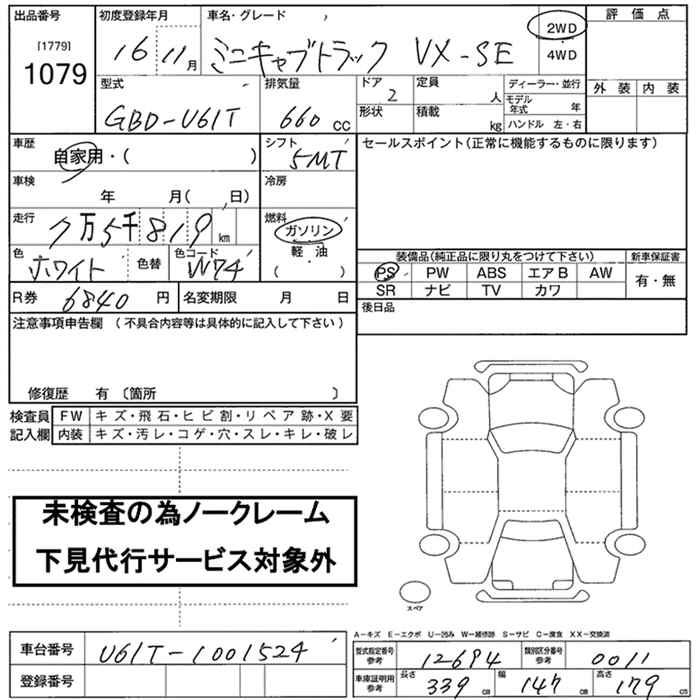 出品番号
[1779]
1079
初度登録年月
16 11月
車名・グレード
ミニキャブトラック VX-SE
2WD
4WD
評価点
外装 内装
型式
GBD-U61T
排気量
660 CC
ドア
2
形状
定員
人
積載
kg
ディーラー・並行
モデル年式 年
ハンドル 左・右
車歴
自家用・( )
シフト
5MT
車検
年 月( 日)
冷房
走行
7万5千819 km
燃料
ガソリン
軽・油
( )
色
ホワイト
色替
色コード
W74
R券 6840 円
名変期限 月 日
セールスポイント(正常に機能するものに限ります)
装備品(純正品に限り丸をつけて下さい)
新車保証書
PS PW ABS エアB AW
SR ナビ TV カワ
有・無
後日品
注意事項申告欄 (不具合内容等は具体的に記入して下さい)
修復歴 有 〔箇所 〕
検査員記入欄
FW キズ・飛石・ヒビ割・リペア跡・X要
内装 キズ・汚レ・コゲ・穴・スレ・キレ・破レ
未検査の為ノークレーム
下見代行サービス対象外
スペア
A-キズ E-エクボ U-凹み W-補修跡 S-サビ C-腐食 XX-交換済
車台番号 U61T-1001524
登録番号
型式指定番号参考 12694
類別区分番号参考 0011
車庫証明用参考
長さ 339 cm
幅 147 cm
高さ 179 cm